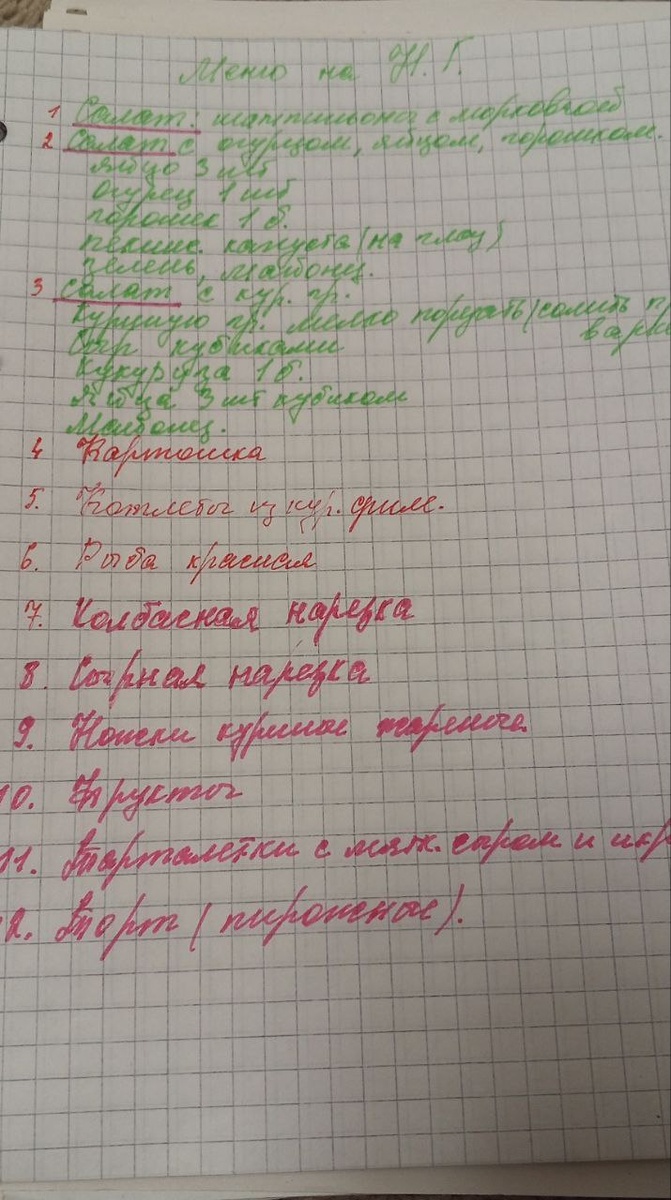 Меню на Н.Г.
1 Салат: шампиньоны с морковкой
2 Салат с огурцом, яйцом, горошком.
яйцо 3 шт
огурец 1 шт
горошек 1 б.
пекинс. капуста (на глаз)
зелень, майонез.
3 Салат с кур. гр.
Куриную гр. мелко порезать (солить п
варк
Сыр кубиками
Кукуруза 1 б.
Яйца 3 шт кубиком
Майонез.
4 Картошка
5. Котлеты из кур. филе.
6. Рыба красная
7. Колбасная нарезка
8. Сырная нарезка
9. Ножки куриные жареные
10. Фрукты
11. Тарталетки с мягк. сыром и икр
2. Торт (пирожные).